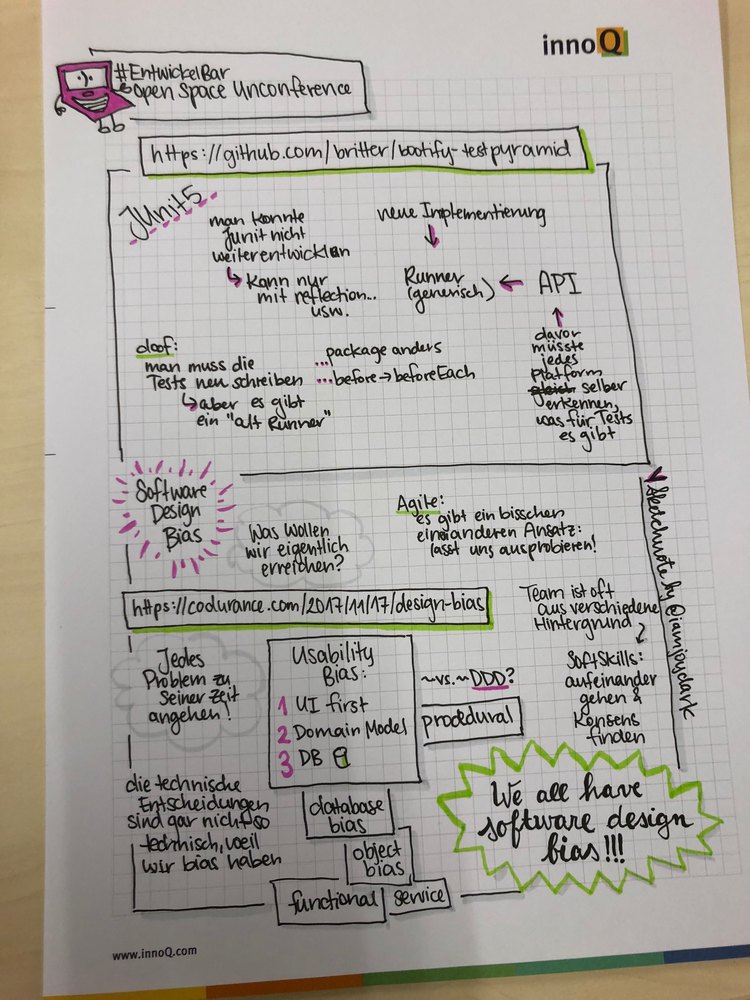 innoQ
#EntwickelBar
Open Space Unconference
https://github.com/britter/bootify-testpyramid
JUnit5
man konnte
Junit nicht
weiterentwickeln
↳ Kann nur
mit reflection...
usw.
neue Implementierung
↓
Runner
(generisch)
← API
↑
davor
müsste
jedes
platform
selber
erkennen,
was für Tests
es gibt
doof:
man muss die
Tests neu schreiben
↳ aber es gibt
ein "alt Runner"
... package anders
... before → beforeEach
Software
Design
Bias
Was wollen
wir eigentlich
erreichen?
Agile:
es gibt ein bisschen
einen anderen Ansatz:
lasst uns ausprobieren!
Sketchnote by @iamjoyclark
https://codurance.com/2017/11/17/design-bias
Team ist oft
aus verschiedene
Hintergrund
SoftSkills:
aufeinander
gehen &
Konsens
finden
Jedes
Problem zu
seiner Zeit
angehen!
Usability
Bias:
1 UI first
2 Domain Model
3 DB
~vs.~ DDD?
procedural
die technische
Entscheidungen
sind gar nicht so
technisch, weil
wir bias haben
database
bias
object
bias
functional
service
We all have
software design
bias!!!
www.innoQ.com